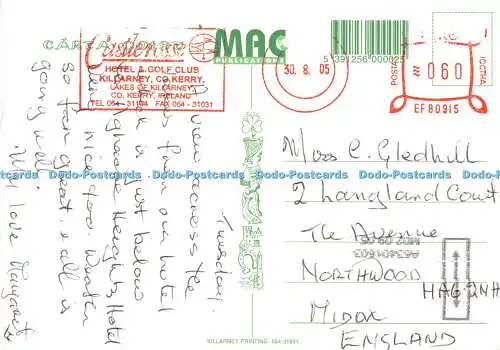 CARTA
Castlerosse
HOTEL & GOLF CLUB
KILLARNEY, CO. KERRY.
LAKES OF KILLARNEY
CO. KERRY, IRELAND
TEL 064 - 31144 FAX 064 - 31031
MAC
PUBLICATIONS
5 391256 000025
30. 8. 05
POSTAS
≈ 060
EF 80915
Tuesday.
A view across the
lakes from our hotel
which is just below
Aghadoe Heights Hotel
nice too. Weather
so far great & all is
going well.
With love Margaret
Miss C. Gledhill
2 Langland Court
The Avenue
NORTHWOOD
HA6 2NH
MIDDX
ENGLAND
KILLARNEY PRINTING 064-31891
Dodo-Postcards Dodo-Postcards Dodo-Postcards Dodo-Postcards Dodo-Postcards